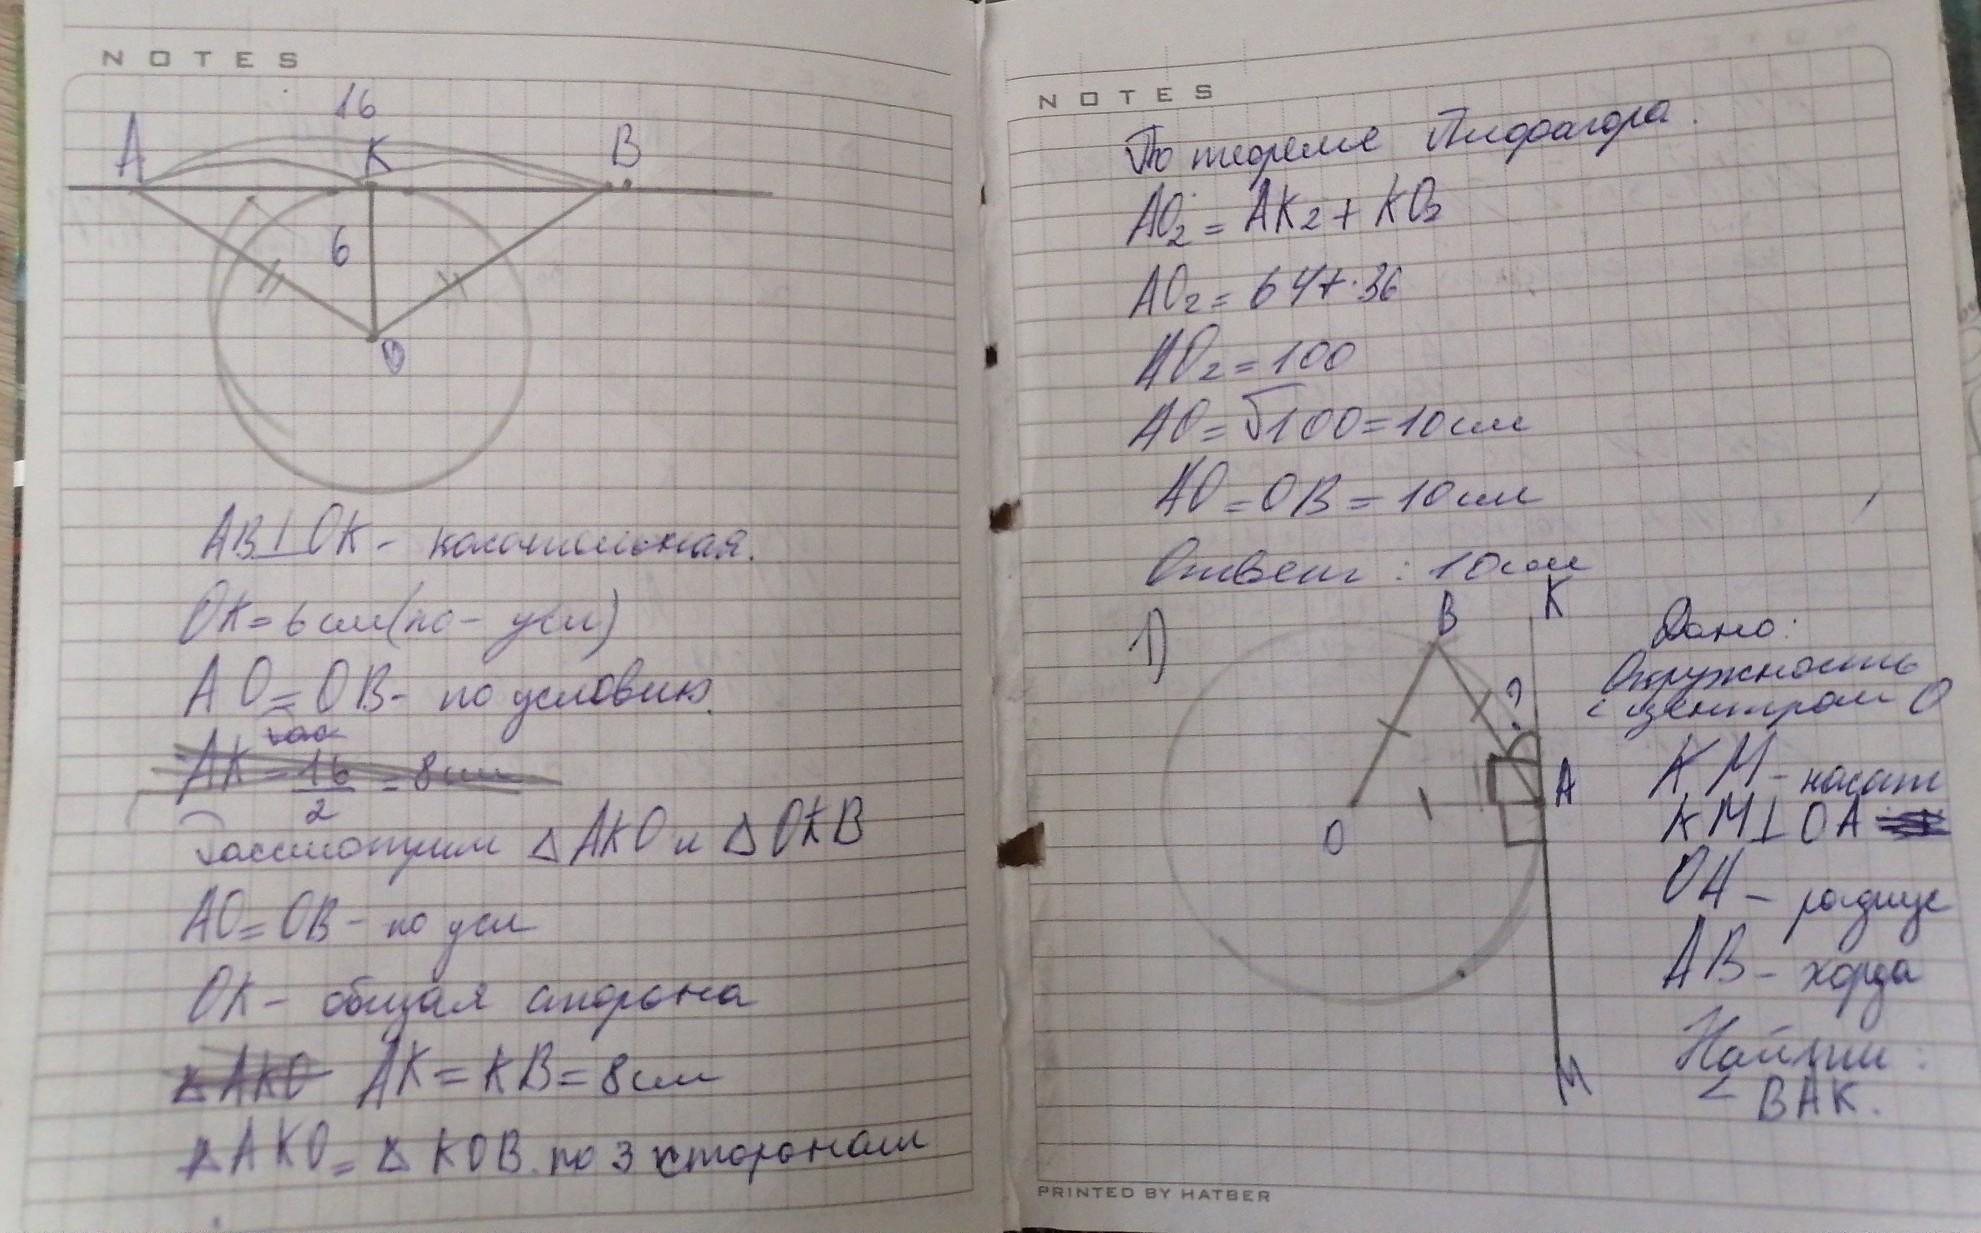 NOTES
16
A K B
6
O
AB⊥OK - касательная.
OK = 6 см (по - усл)
AO = OB - по условию.
AK = 16/2 = 8 см
Рассмотрим △ AKO и △ OKB
AO = OB - по усл
OK - общая сторона
△ AKO AK = KB = 8 см
△ AKO = △ KOB по 3 сторонам
NOTES
По теореме Пифагора.
AO2 = AK2 + KO2
AO2 = 64+36
AO2 = 100
AO = √100 = 10 см
AO = OB = 10 см
Ответ: 10 см
1)
B K
?
A
O
M
Дано:
Окружность
с центром O
KM - касат
KM⊥OA
OA - радиус
AB - хорда
Найти:
∠ BAK.
PRINTED BY HATBER